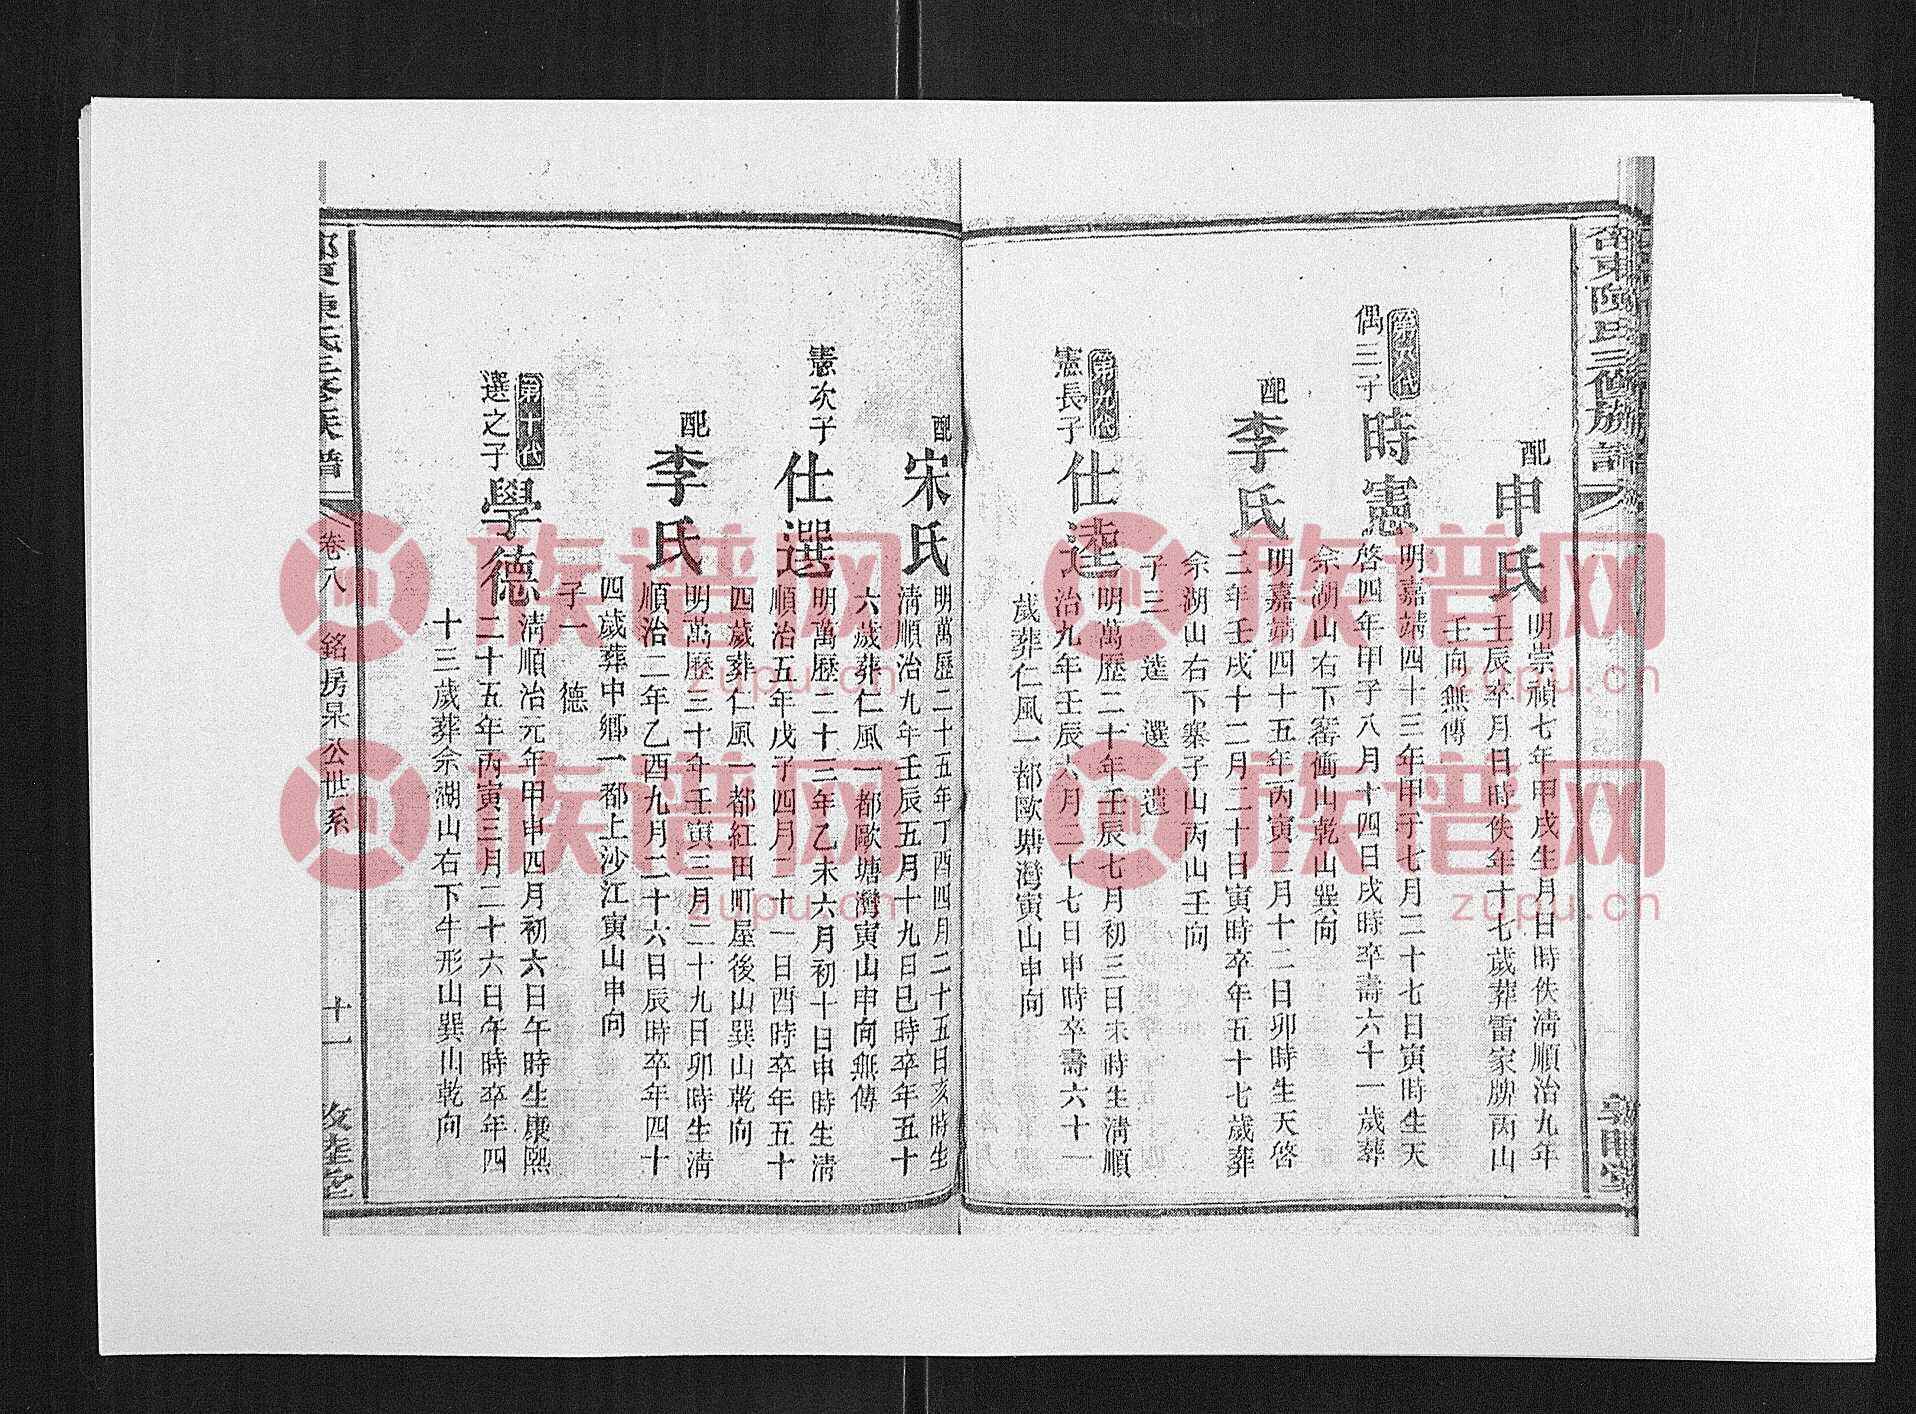 邵東陳氏三修族譜
配
申氏
明崇禎七年甲戌生月日時佚清順治九年
壬辰卒月日時佚年十七歲葬雷家牌丙山
壬向無傳
第八代
偶三子
時憲
明嘉靖四十三年甲子七月二十七日寅時生天
啓四年甲子八月十四日戌時卒壽六十一歲葬
佘湖山右下窰衝山乾山巽向
配
李氏
明嘉靖四十五年丙寅二月十二日卯時生天啓
二年壬戌十二月二十日寅時卒年五十七歲葬
佘湖山右下寨子山丙山壬向
子三 逵 選 遴
第九代
憲長子
仕逵
明萬歷二十年壬辰七月初三日未時生清順
治九年壬辰六月二十七日申時卒壽六十一
歲葬仁風一都歐塘灣寅山申向
配
宋氏
明萬歷二十五年丁酉四月二十五日亥時生
清順治九年壬辰五月十九日巳時卒年五十
六歲葬仁風一都歐塘灣寅山申向無傳
憲次子
仕選
明萬歷二十三年乙未六月初十日申時生清
順治五年戊子四月二十一日酉時卒年五十
四歲葬仁風一都紅田町屋後山巽山乾向
配
李氏
明萬歷三十年壬寅三月二十九日卯時生清
順治二年乙酉九月二十六日辰時卒年四十
四歲葬中鄉一都上沙江寅山申向
子一 德
第十代
選之子
學德
清順治元年甲申四月初六日午時生康熙
二十五年丙寅三月二十六日午時卒年四
十三歲葬佘湖山右下牛形山巽山乾向
卷八 銘房杲公世系 十一
族谱网
zupu.cn
族谱网
zupu.cn
族谱网
zupu.cn
族谱网
zupu.cn